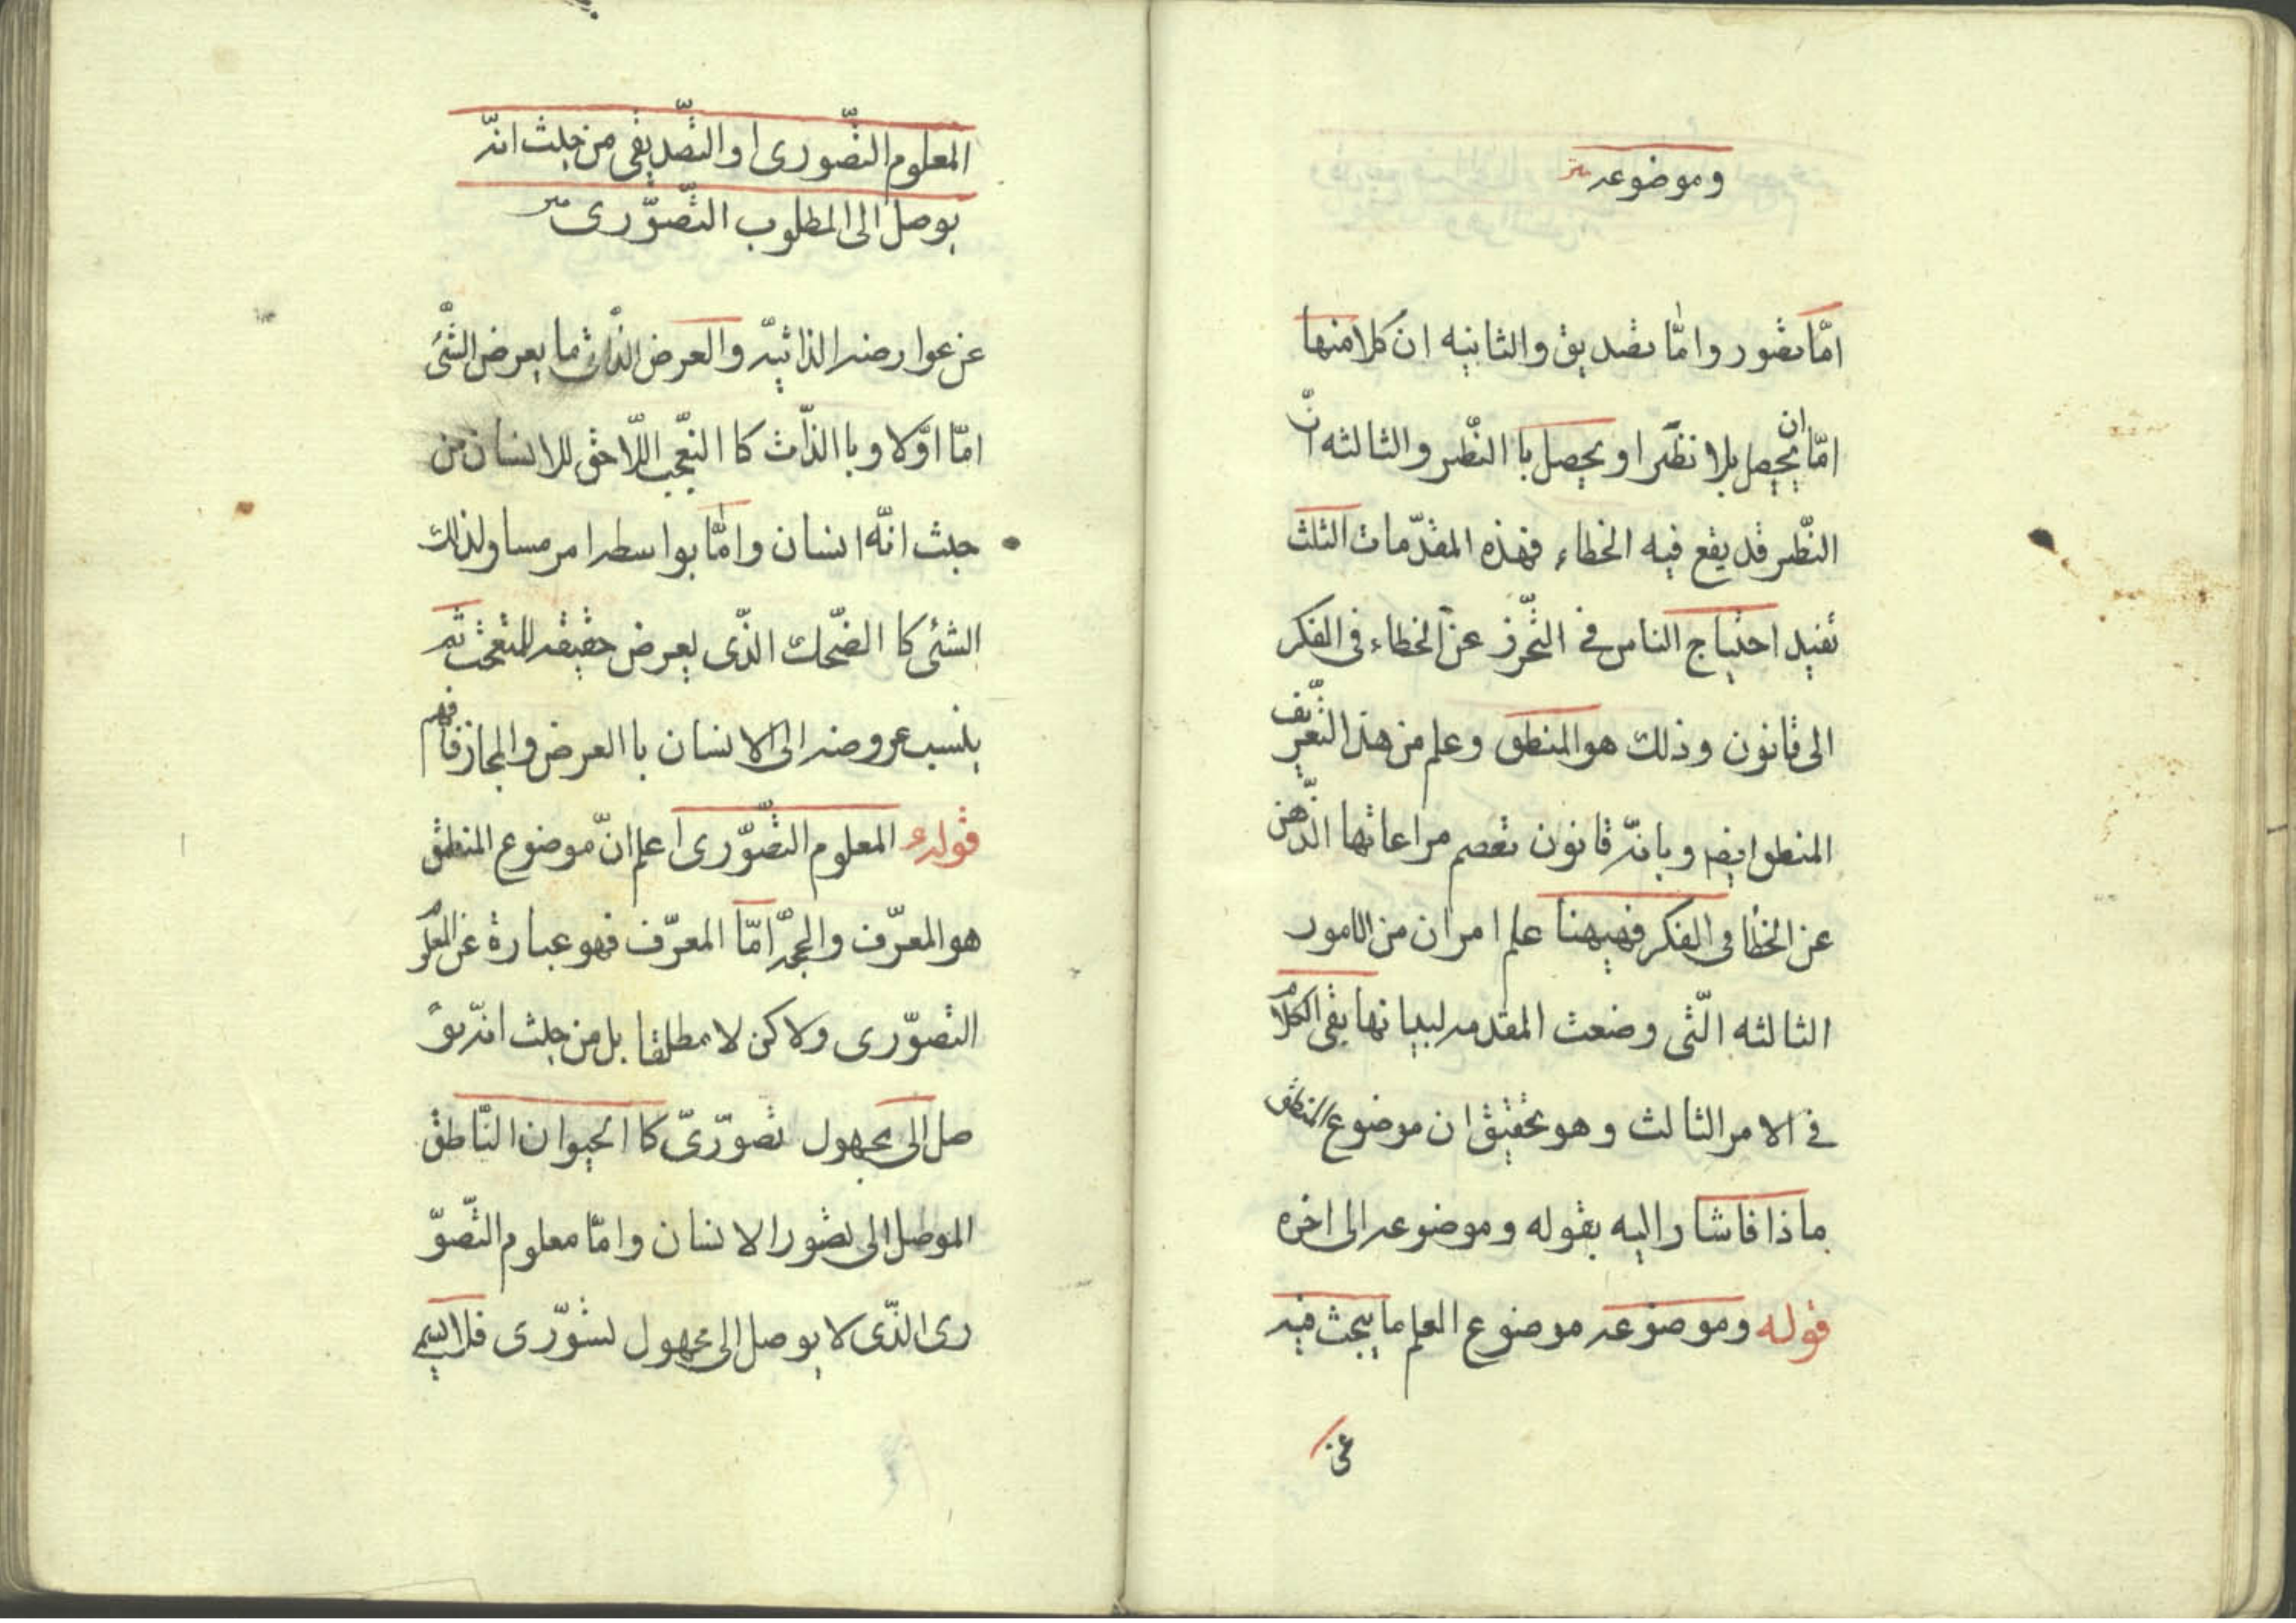 وموضوعه
امّا تصّور وامّا تصديق والثانيه ان كلا منها
امّا ان يحصل بلا نظر او يحصل با النّظر والثالثه انّ
النّظر قد يقع فيه الخطاء فهذه المقدّمات الثلث
تفيد احتياج الناس فى التّحرّز عن الخطاء فى الفكر
الى قانون وذلك هو المنطق وعلم من هذا التّعريف
المنطق ايضا وبانّه قانون تعصم مراعاتها الذّهن
عن الخطأ فى الفكر فهيهنا علم امران من الامور
الثالثه الّتى وضعت المقدمه لبيانها بقى الكلام
فى الامر الثالث وهو تحقيق ان موضوع المنطق
ماذا فاشار اليه بقوله وموضوعه الى اخره
قوله وموضوعه موضوع العلم ما يبحث فيه
عن
المعلوم التّصورى او التّصديقى من حيث انّه
يوصل الى المطلوب التّصوّرى
عن عوارضه الذاتيّه والعرض الذّاتى ما يعرض الشّئ
امّا اوّلا وبا الذّات كا التّعجّب اللّاحق للانسان من
حيث انّه انسان وامّا بواسطه امر مساو لذلك
الشئى كا الضّحك الذّى يعرض حقيقه للمتعجّب ثم
ينسب عروضه الى الانسان با العرض والمجاز فافهم
قوله المعلوم التّصوّرى اعلم انّ موضوع المنطق
هو المعرّف والحجّه امّا المعرّف فهو عبارة عن المعلوم
التّصوّرى ولاكن لا مطلقا بل من حيث انّه يو
صل الى مجهول تصوّرىّ كا الحيوان النّاطق
الموصل الى تصّور الانسان وامّا معلوم التّصوّ
رى الذّى لا يوصل الى مجهول تسّورى فلا يسمى